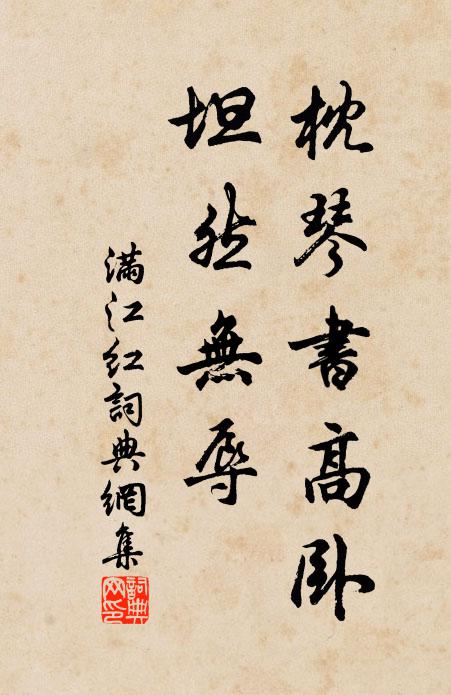 枕琴書高臥
坦然無辱
滿江红詞典網集
詞典網印